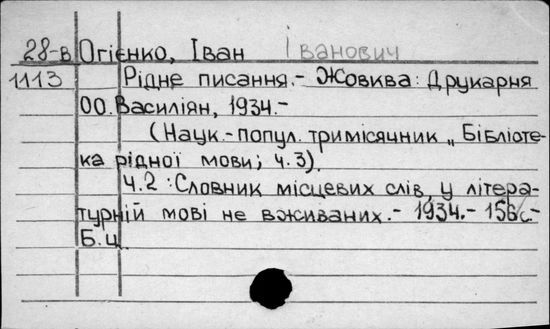 28-в Огієнко, Іван Іванович
1113 Рідне писання.- Жовква: Друкарня
ОО. Василіян, 1934.-
(Наук.-попул. тримісячник „Бібліоте-
ка рідної мови; ч.3).
Ч.2: Словник місцевих слів, у літера-
турній мові не вживаних.- 1934.- 156с.-
Б.ц.